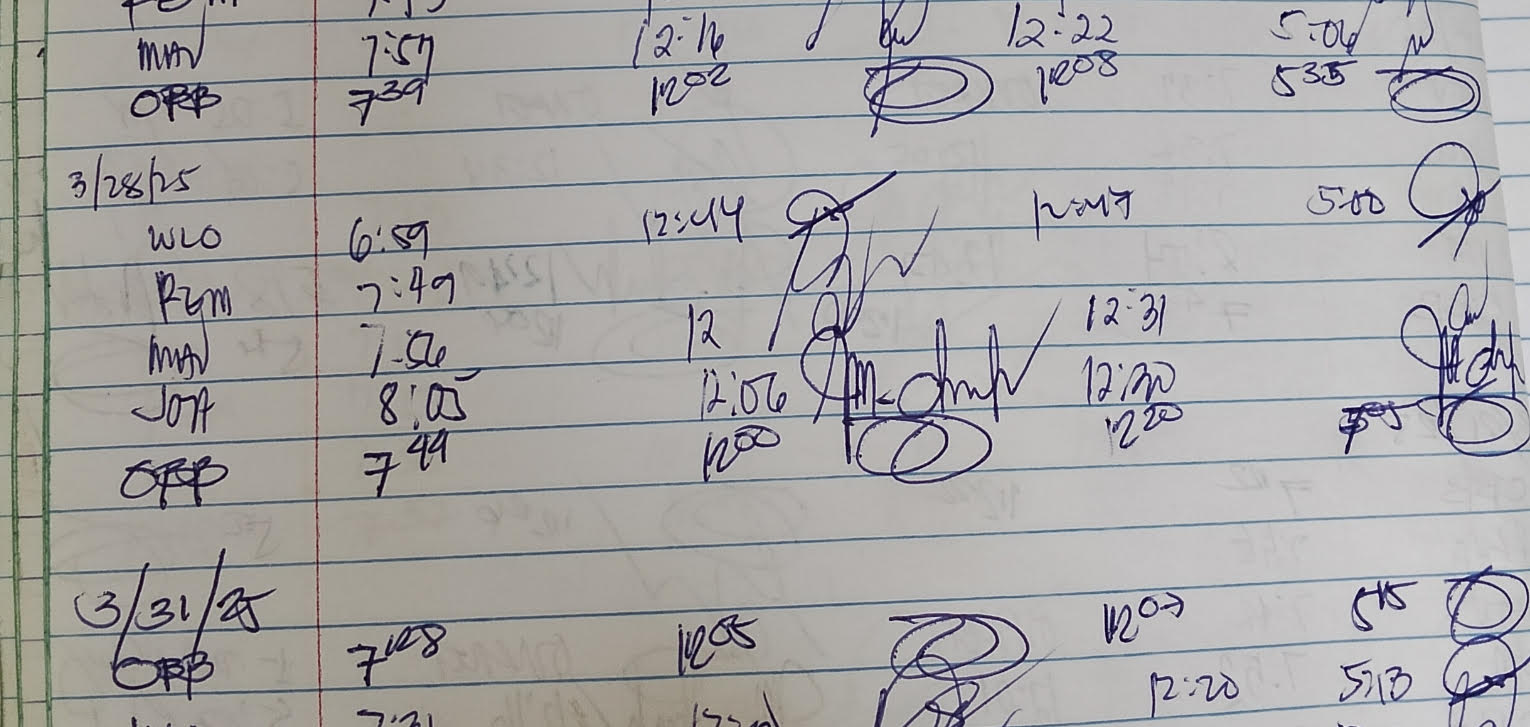 MAV 7:57 12:16 12:22 5:06
OBB 7 39 12 02 12 08 5 35
3/28/25
WLO 6:59 12:44 12:47 5:00
RGM 7:49
MAV 7:56 12 12:31
JOA 8:05 12:06 12:30
OBB 7 49 12 00 12 20 5 05
3/31/25
OBB 7 28 12 05 12 07 5 15
7:31 12:20 5:13